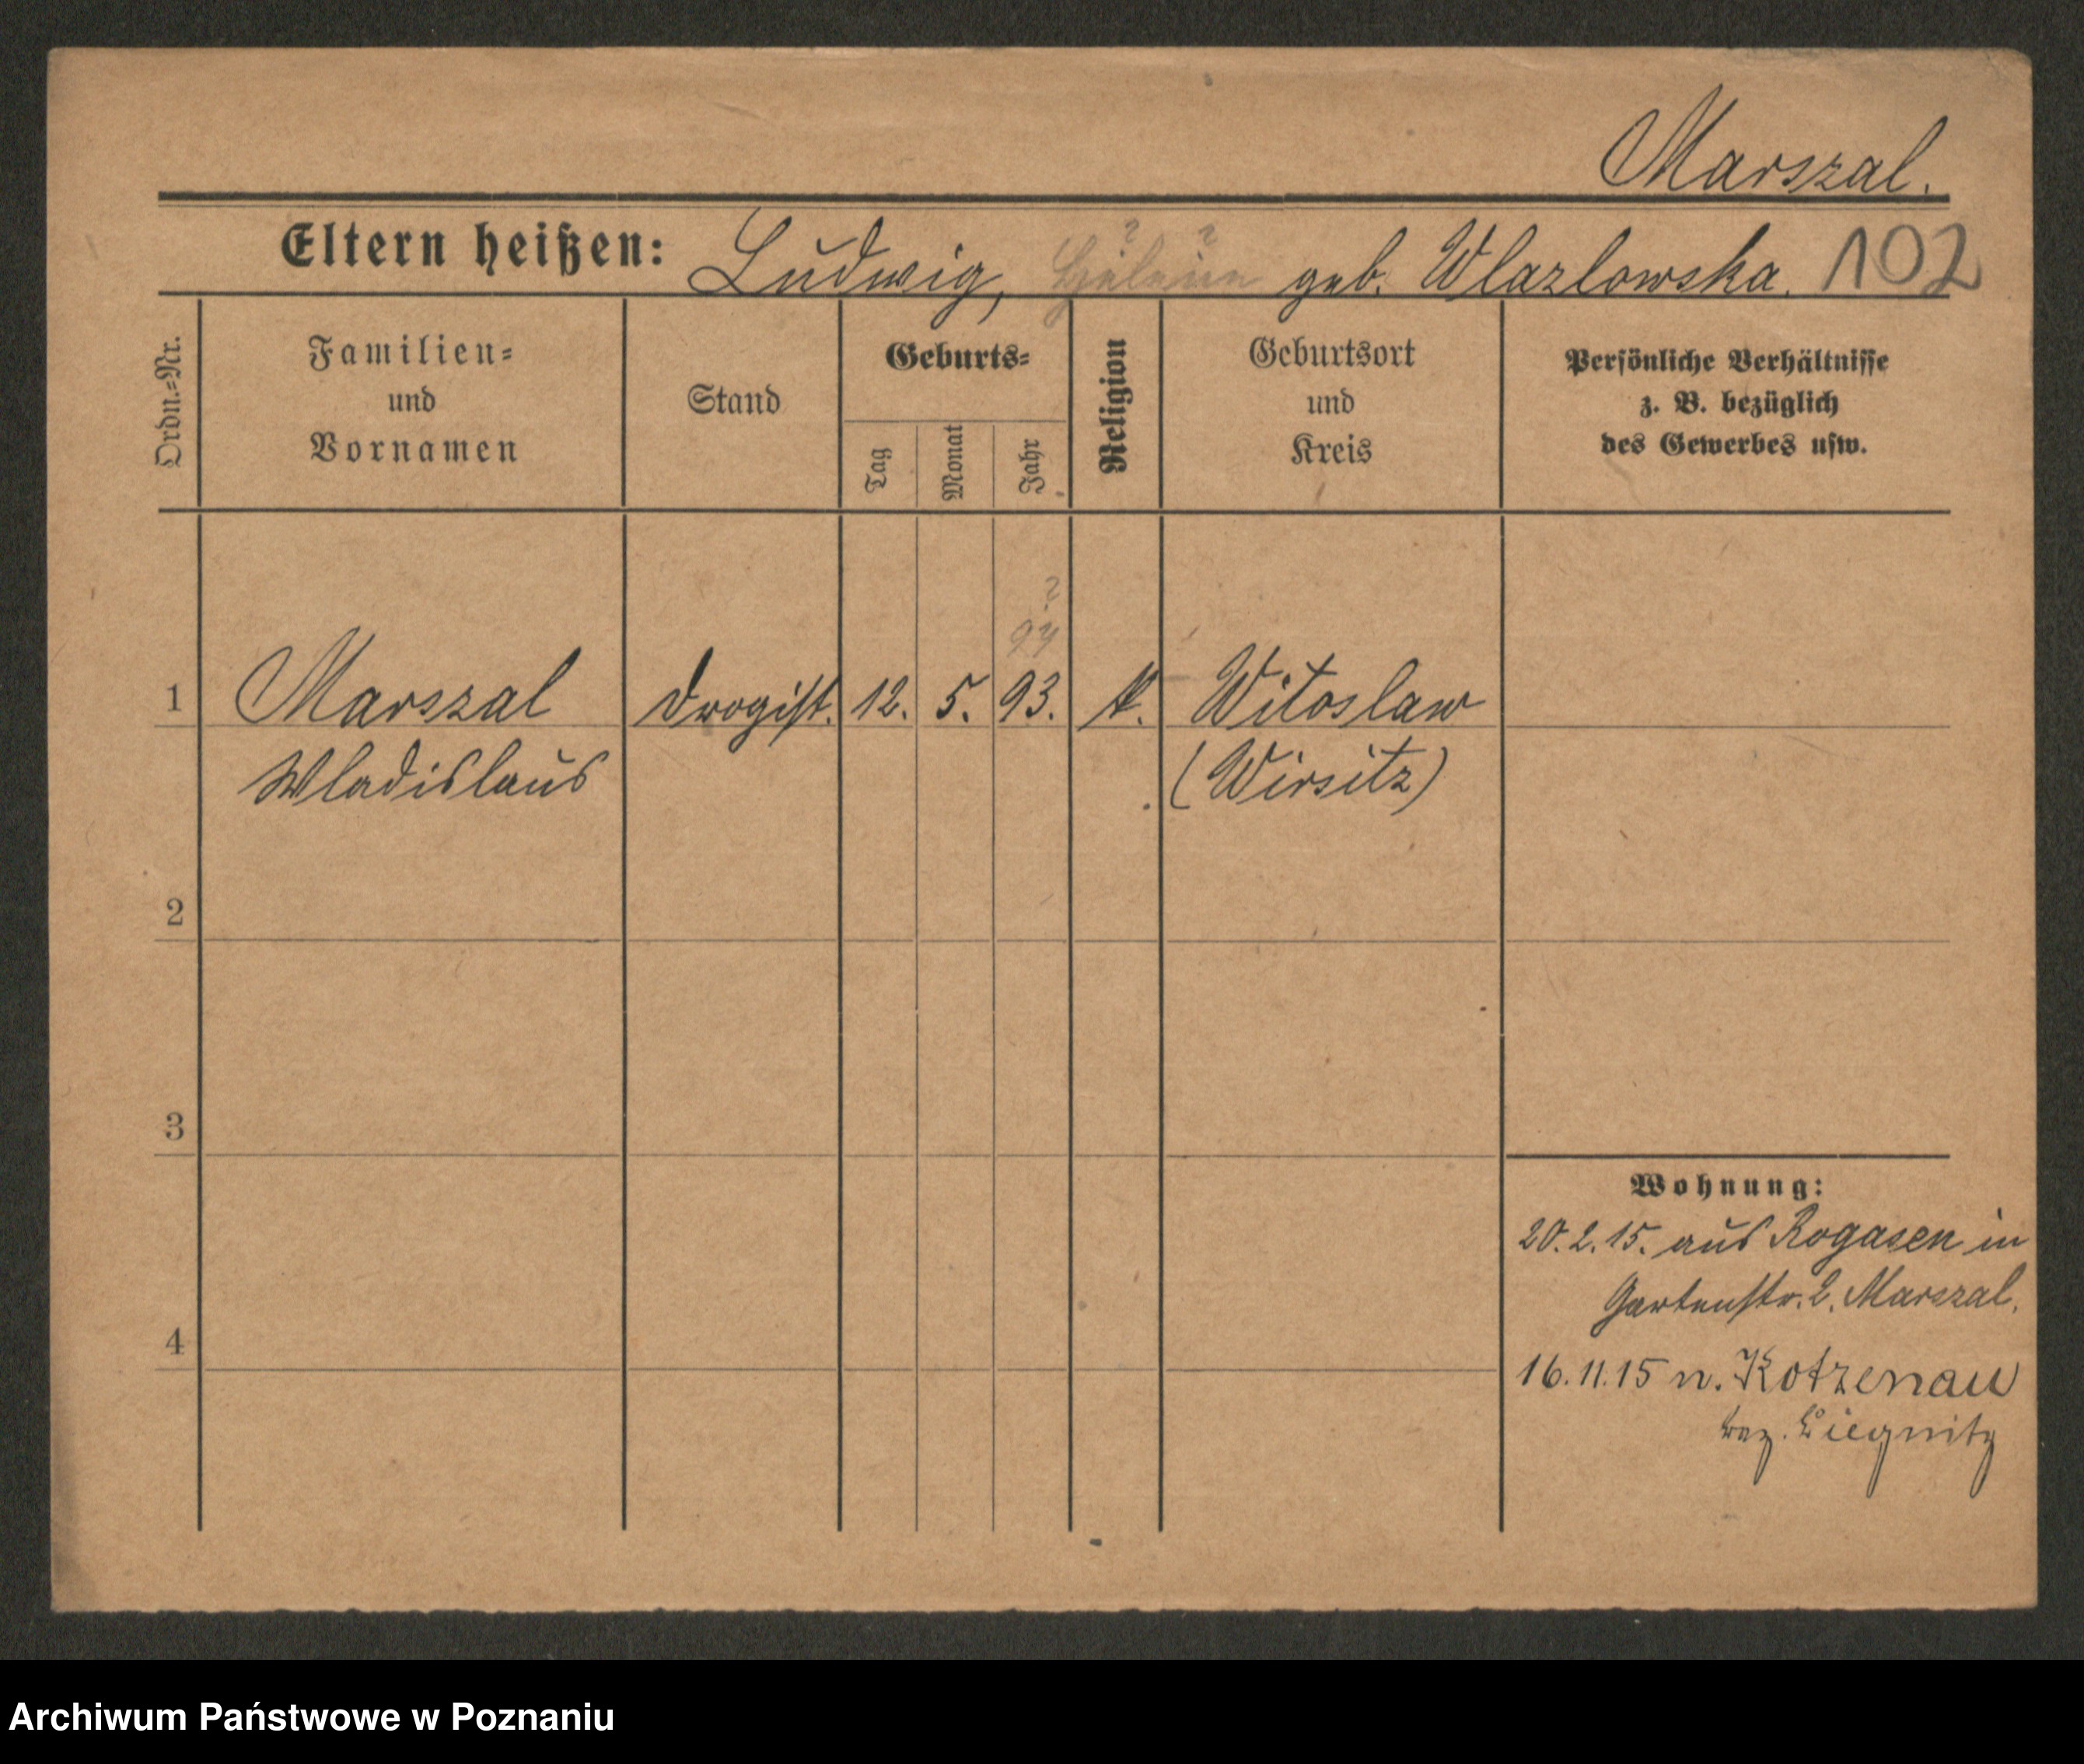 Marszal.
Eltern heißen: Ludwig, geb. Wlazlowska. 102
Ordn.=Nr.
Familien=
und
Vornamen
Stand
Geburts=
Tag
Monat
Jahr
Religion
Geburtsort
und
Kreis
Persönliche Verhältnisse
z. B. bezüglich
des Gewerbes usw.
?
94
1 Marszal Drogist. 12. 5. 93. k. Witoslaw
Wladislaus (Wirsitz)
2
3
4
Wohnung:
20.2.15. aus Rogasen in
Gartenstr. 2. Marszal.
16.11.15 n. Kotzenau
bez. Liegnitz
Archiwum Państwowe w Poznaniu